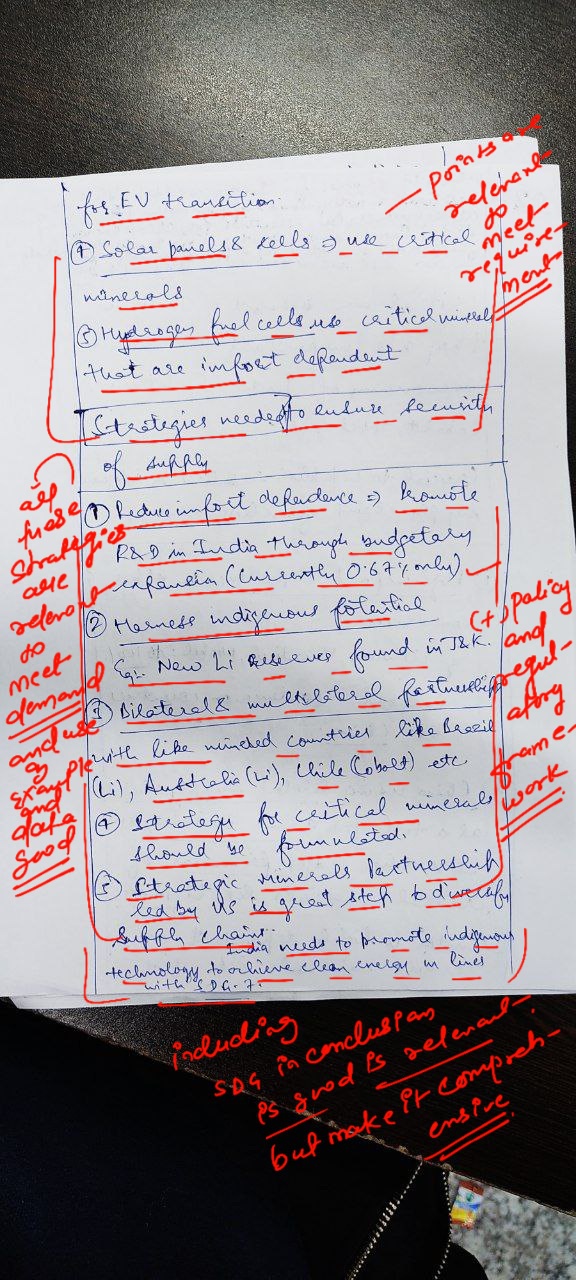 for EV transition
④ Solar panels & cells ⇒ use critical
minerals
⑤ Hydrogen fuel cells use critical minerals
that are import dependent
Strategies needed to ensure security
of supply
① Reduce import dependence ⇒ Promote
R&D in India through budgetary
expansion (Currently 0.67% only)
② Harness indigenous potential
Eg:- New Li reserves found in J&K.
③ Bilateral & multilateral partnership
with like minded countries like Brazil
(Li), Australia (Li), Chile (Cobalt) etc
④ Strategy for critical minerals
should be formulated.
⑤ Strategic Minerals Partnership
led by US is great step to diversify
supply chains.
India needs to promote indigenous
technology to achieve clean energy in lines
with SDG-7.
Points are
relevant
to
meet
require-
ment
all
these
strategies
are
relevant
to
meet
demand
and use
of
example
and
data
good
(+) policy
and
regul-
atory
frame-
work
including
SDG in conclusion
is good is relevant
but make it compreh-
ensive.